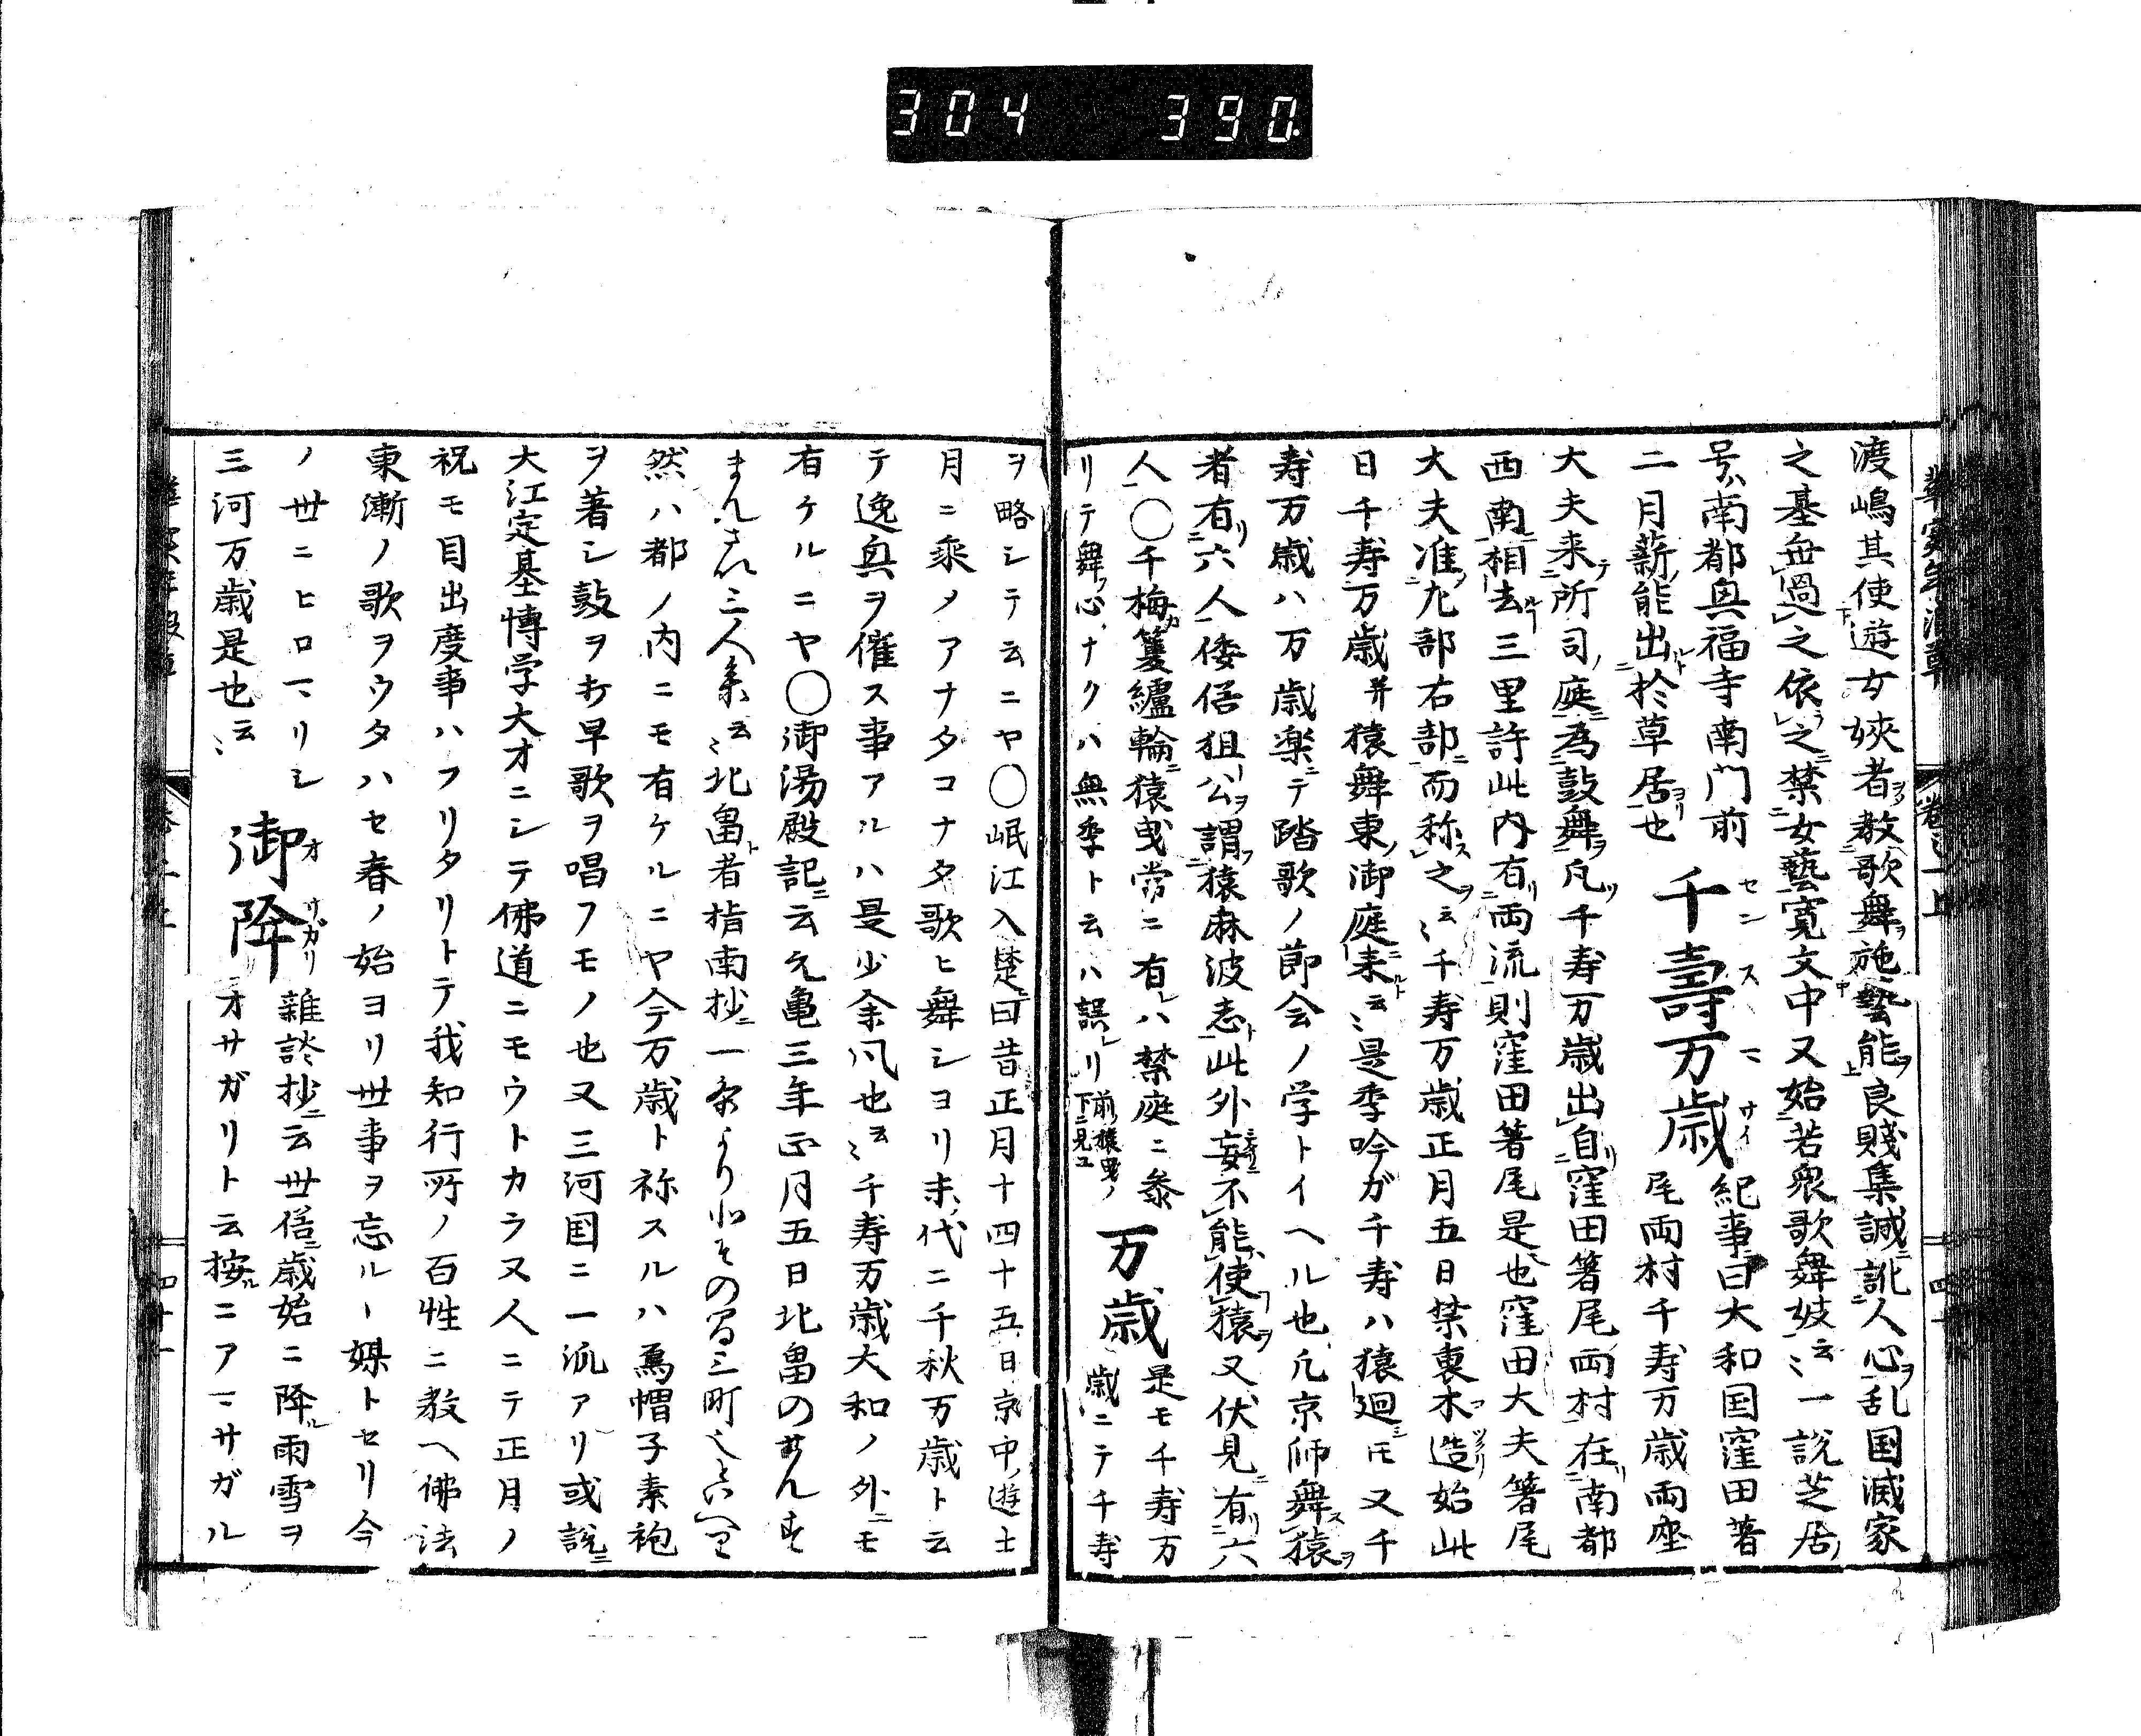 304 390
渡嶋其使遊女娾者教歌舞施藝能良賤集誠訛人心乱国滅家
之基無過之依之禁女藝寛文中又始若衆歌舞妓云〻一説芝居ノ
号ハ南都興福寺南門前
二月薪ノ能出於草居也
千壽万歳 紀事曰大和国窪田箸
センスマンサイ
尾両村千寿万歳両座
大夫来所司ノ庭為鼓舞凡千寿万歳出自窪田箸尾両村在南都
西南相去三里許此内有両流則窪田箸尾是也窪田大夫箸尾
大夫准左部右部而称之云〻千寿万歳正月五日禁裏木造始此
日千寿万歳并猿舞東ノ御庭ニ来云〻是季吟ガ千寿ハ猿廻ニモ又千
寿万歳ハ万歳楽ニテ踏歌ノ節会ノ学トイヘル也凡京師舞猿ヲ
者有六人倭俗狙公ヲ謂猿麻波志此外妄不能使猿ヲ又伏見有六
人〇千梅篗纑輪ニ猿曳常ニ有レハ禁庭ニ参
リテ舞フ心ナクハ無季ト云ハ誤リ前ノ猿曳ノ下ニ見ユ
万歳 是モ千寿万
歳ニテ千寿
ヲ略シテ云ニヤ〇岷江入楚曰昔正月十四十五日京中ノ遊士
月ニ乘メアナタコナタ歌ヒ舞シヨリ末ノ代ニ千秋万歳ト云
テ逸興ヲ催ス事アルハ是少余風也云〻千寿万歳大和ノ外ニモ
有ケルニヤ〇御湯殿記ニ云元亀三年正月五日北畠のせんす
まんさい三人参云〻北畠ト者指南抄ニ一条より北その間三町
然ハ都ノ内ニモ有ケルニヤ今万歳ト称スルハ烏帽子素袍
ヲ著シ鼓ヲ打早歌ヲ唱フモノ也又三河国ニ一流アリ或説ニ
大江定基博学大才ニシテ佛道ニモウトカラス人ニテ正月ノ
祝モ目出度事ハフリタリトテ我知行所ノ百性ニ教ヘ佛法
東漸ノ歌ヲウタハセ春ノ始ヨリ世事ヲ忘ルヽ媒トセリ今
ノ世ニヒロマリシ
三河万歳是也云〻
御降 雑談抄ニ云世俗ニ歳始ニ降ル雨雪ヲ
オサガリ
オサガリト云按ルニアマサガル